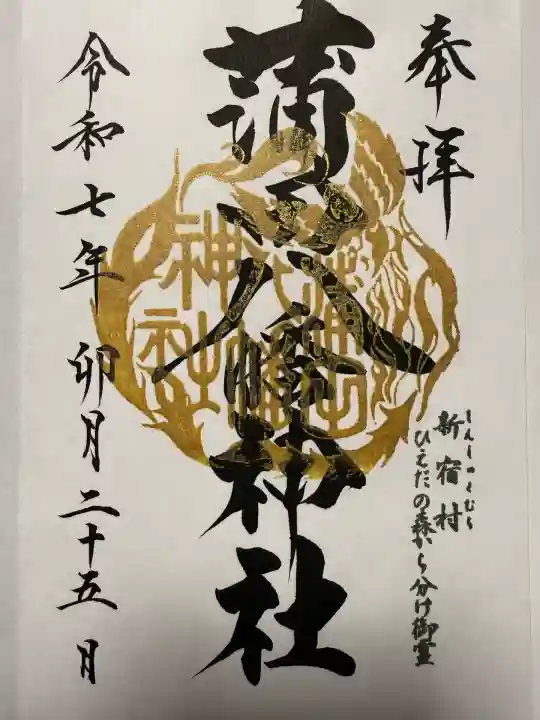 奉拝
しんしゅくむら
新宿村
ひえだの森から分け御霊
蒲田八幡神社
蒲田
八幡
神社
令和七年 卯月 二十五日